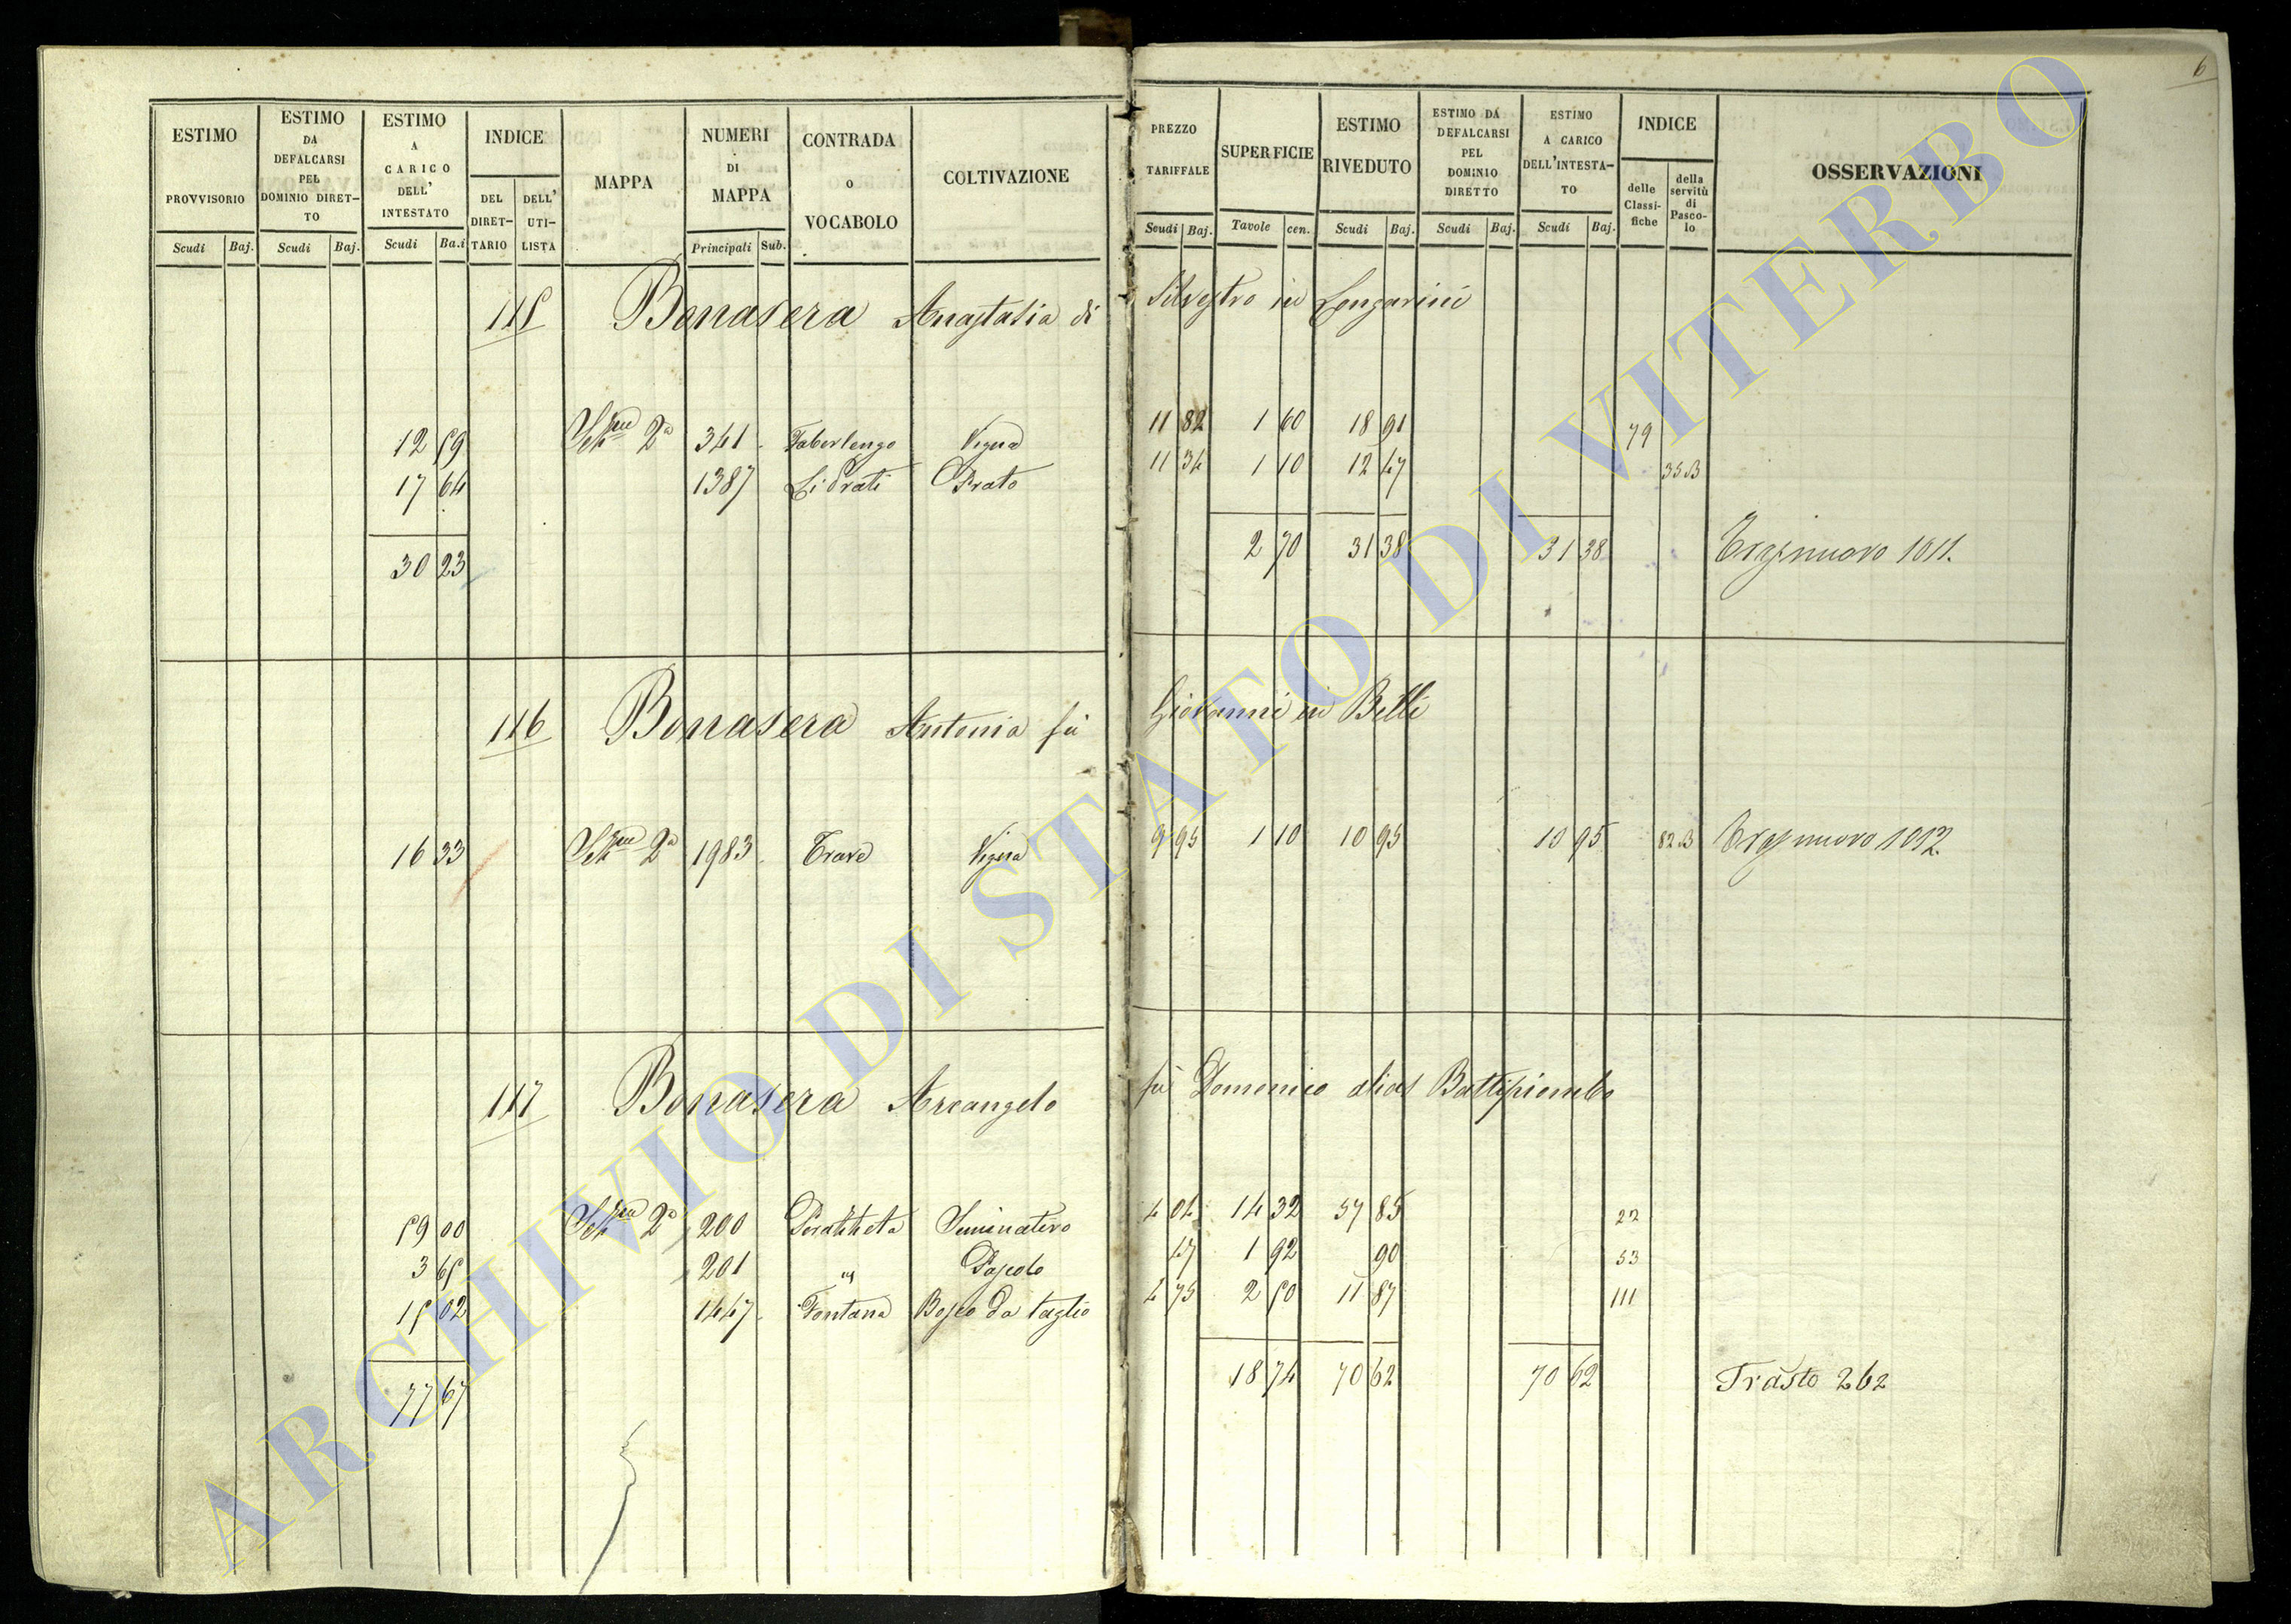 6
ESTIMO PROVVISORIO Scudi Baj.
ESTIMO DA DEFALCARSI PEL DOMINIO DIRET-TO Scudi Baj.
ESTIMO A CARICO DELL' INTESTATO Scudi Ba.i
INDICE DEL DIRET-TARIO DELL' UTI-LISTA
MAPPA
NUMERI DI MAPPA Principali Sub.
CONTRADA O VOCABOLO
COLTIVAZIONE
PREZZO TARIFFALE Scudi Baj.
SUPERFICIE Tavole cen.
ESTIMO RIVEDUTO Scudi Baj.
ESTIMO DA DEFALCARSI PEL DOMINIO DIRETTO Scudi Baj.
ESTIMO A CARICO DELL'INTESTA-TO Scudi Baj.
INDICE delle Classi-fiche della servitù di Pasco-lo
OSSERVAZIONI
115 Bonasera Anastasia di Silvestro in Longarini
12 59 Sezne 2a 341 Taberlengo Vigna 11 82 1 60 18 91 79
17 64 1387 Li Prati Prato 11 34 1 10 12 47 35 B
30 23 2 70 31 38 31 38
116 Bonasera Antonia fù Giovanni in Belli
16 33 Sezne 2a 1983 Trave Vigna 9 95 1 10 10 95 10 95 82 B
117 Bonasera Arcangelo fù Domenico alias Battipiombo
59 00 Sezne 2a 200 Seminativo 4 04 14 32 57 85 22
3 65 201 " Pascolo 47 1 92 90 53
15 02 1447 Fontana Bosco da taglio 4 75 2 50 11 87 111
77 67 18 74 70 62 70 62 Trasto 262
ARCHIVIO DI STATO DI VITERBO